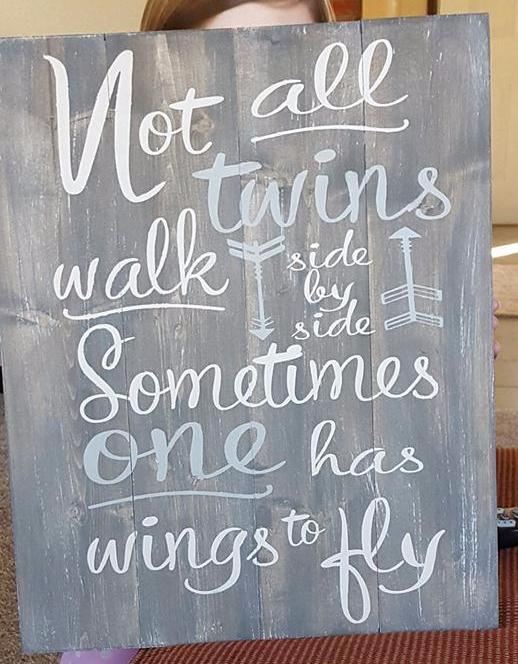 Not all
twins
walk
side
by
side
Sometimes
one has
wings to fly